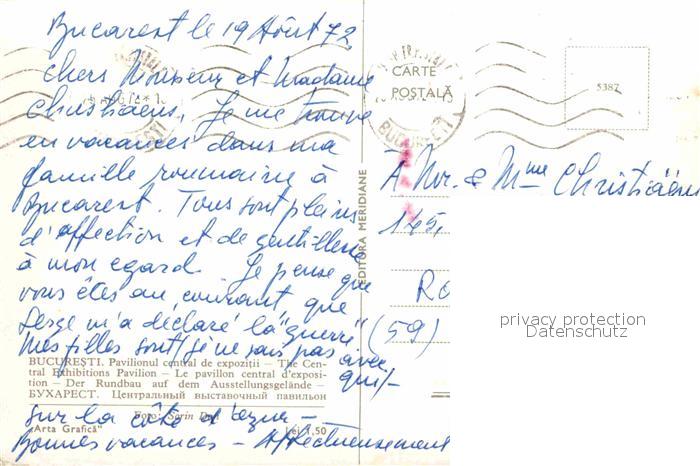 Bucarest le 19 Août 72
Chers Monsieur et Madame
Christiaens, Je me trouve
en vacances dans ma
famille roumaine à
Bucarest. Tous sont pleins
d'affection et de gentillesse
à mon egard. Je pense que
vous êtes au courant que
Serge m'a déclaré la "guerre"
Mes filles sont (je ne sais pas avec
qui)-
BUCUREȘTI. Pavilionul central de expoziții — The Cen-
tral Exhibitions Pavilion — Le pavillon central d'exposi-
tion — Der Rundbau auf dem Ausstellungsgelände —
БУХАРЕСТ. Центральный выставочный павильон
sur la côte d'azur -
Foto: Sorin Dan
"Arta Grafică"
Lei 1,50
Bonnes vacances - Affectueusement
EDITURA MERIDIANE
CARTE
POSTALĂ
BUCUREȘTI
5387
À Mr. & Mme Christiaens
145,
Ro
(59)
privacy protection
Datenschutz